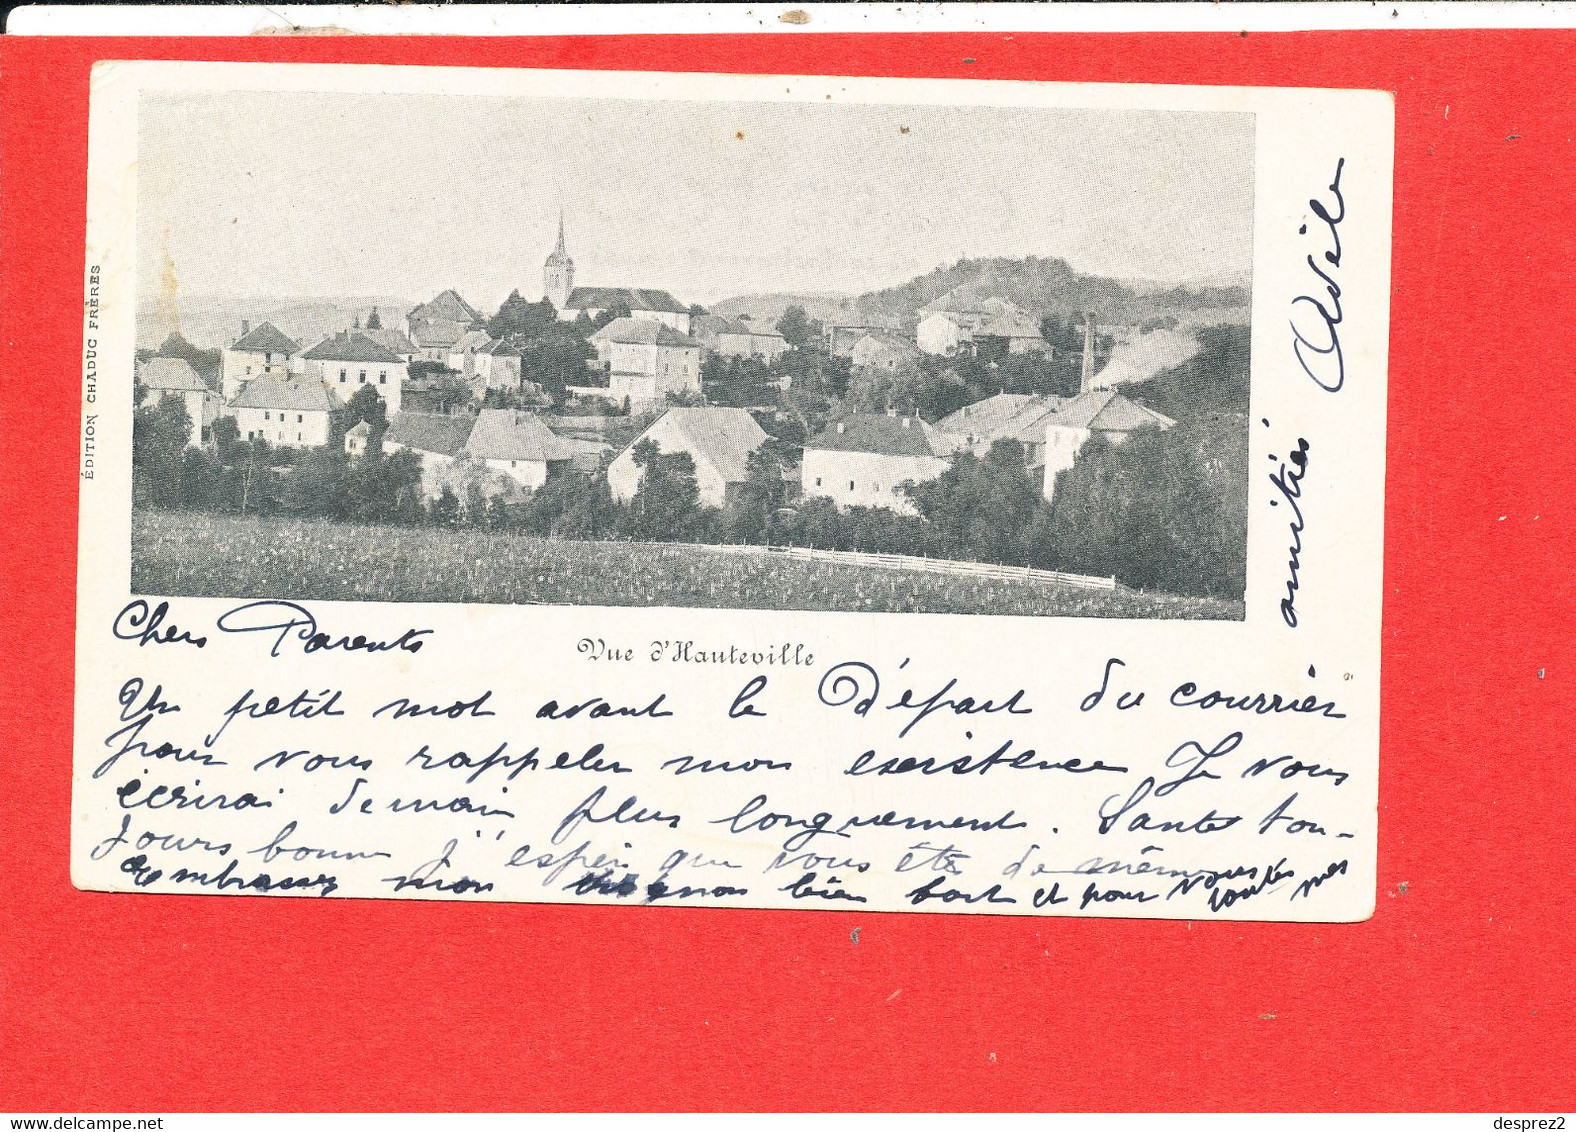 ÉDITION CHADUC FRÈRES
Chers Parents
Vue d'Hauteville
Un petit mot avant le Départ du courrier
pour vous rappeler mon existence Je vous
écrirai demain plus longuement. Santé tou-
jours bonne j'espère que vous éte de même
embrasser mon bien fort et pour vous toutes mes
amitiés Adèle
desprez2